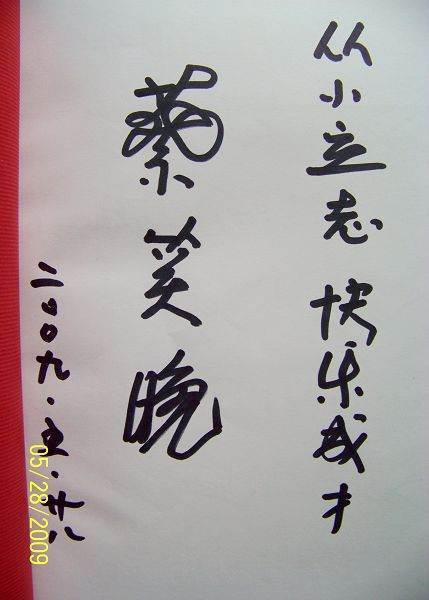 从小立志 快乐成才
蔡笑晚
二00九·五·廿八
05/28/2009